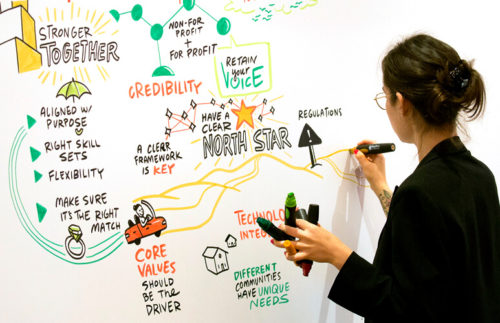 STRONGER
TOGETHER
NON-FOR
PROFIT
+
FOR PROFIT
CREDIBILITY
RETAIN
your
VOICE
ALIGNED W/
PURPOSE
RIGHT SKILL
SETS
FLEXIBILITY
MAKE SURE
IT'S THE RIGHT
MATCH
A CLEAR
FRAMEWORK
IS KEY
HAVE A
CLEAR
NORTH STAR
REGULATIONS
CORE
VALUES
SHOULD
BE THE
DRIVER
DIFFERENT
COMMUNITIES
HAVE UNIQUE
NEEDS